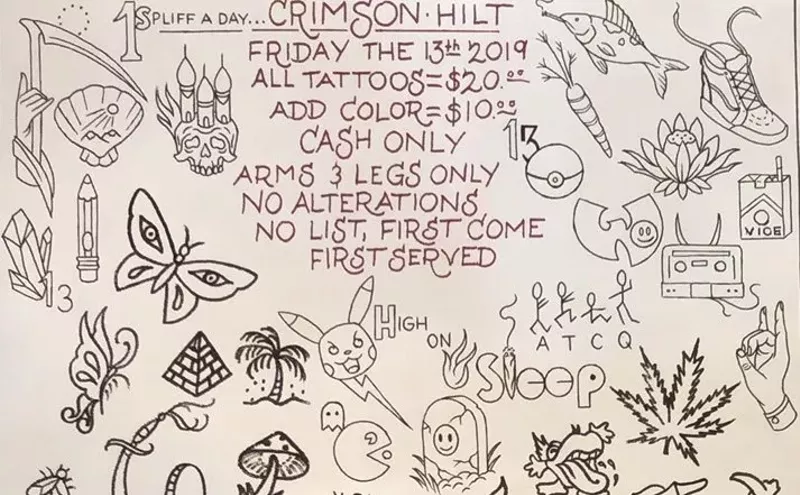 1 SPLIFF A DAY...
CRIMSON · HILT
FRIDAY THE 13th 2019
ALL TATTOOS=$20.00
ADD COLOR=$10.00
CASH ONLY
ARMS & LEGS ONLY
NO ALTERATIONS
NO LIST, FIRST COME
FIRST SERVED
13
VICE
13
HIGH
ON
SleeP
A T C Q